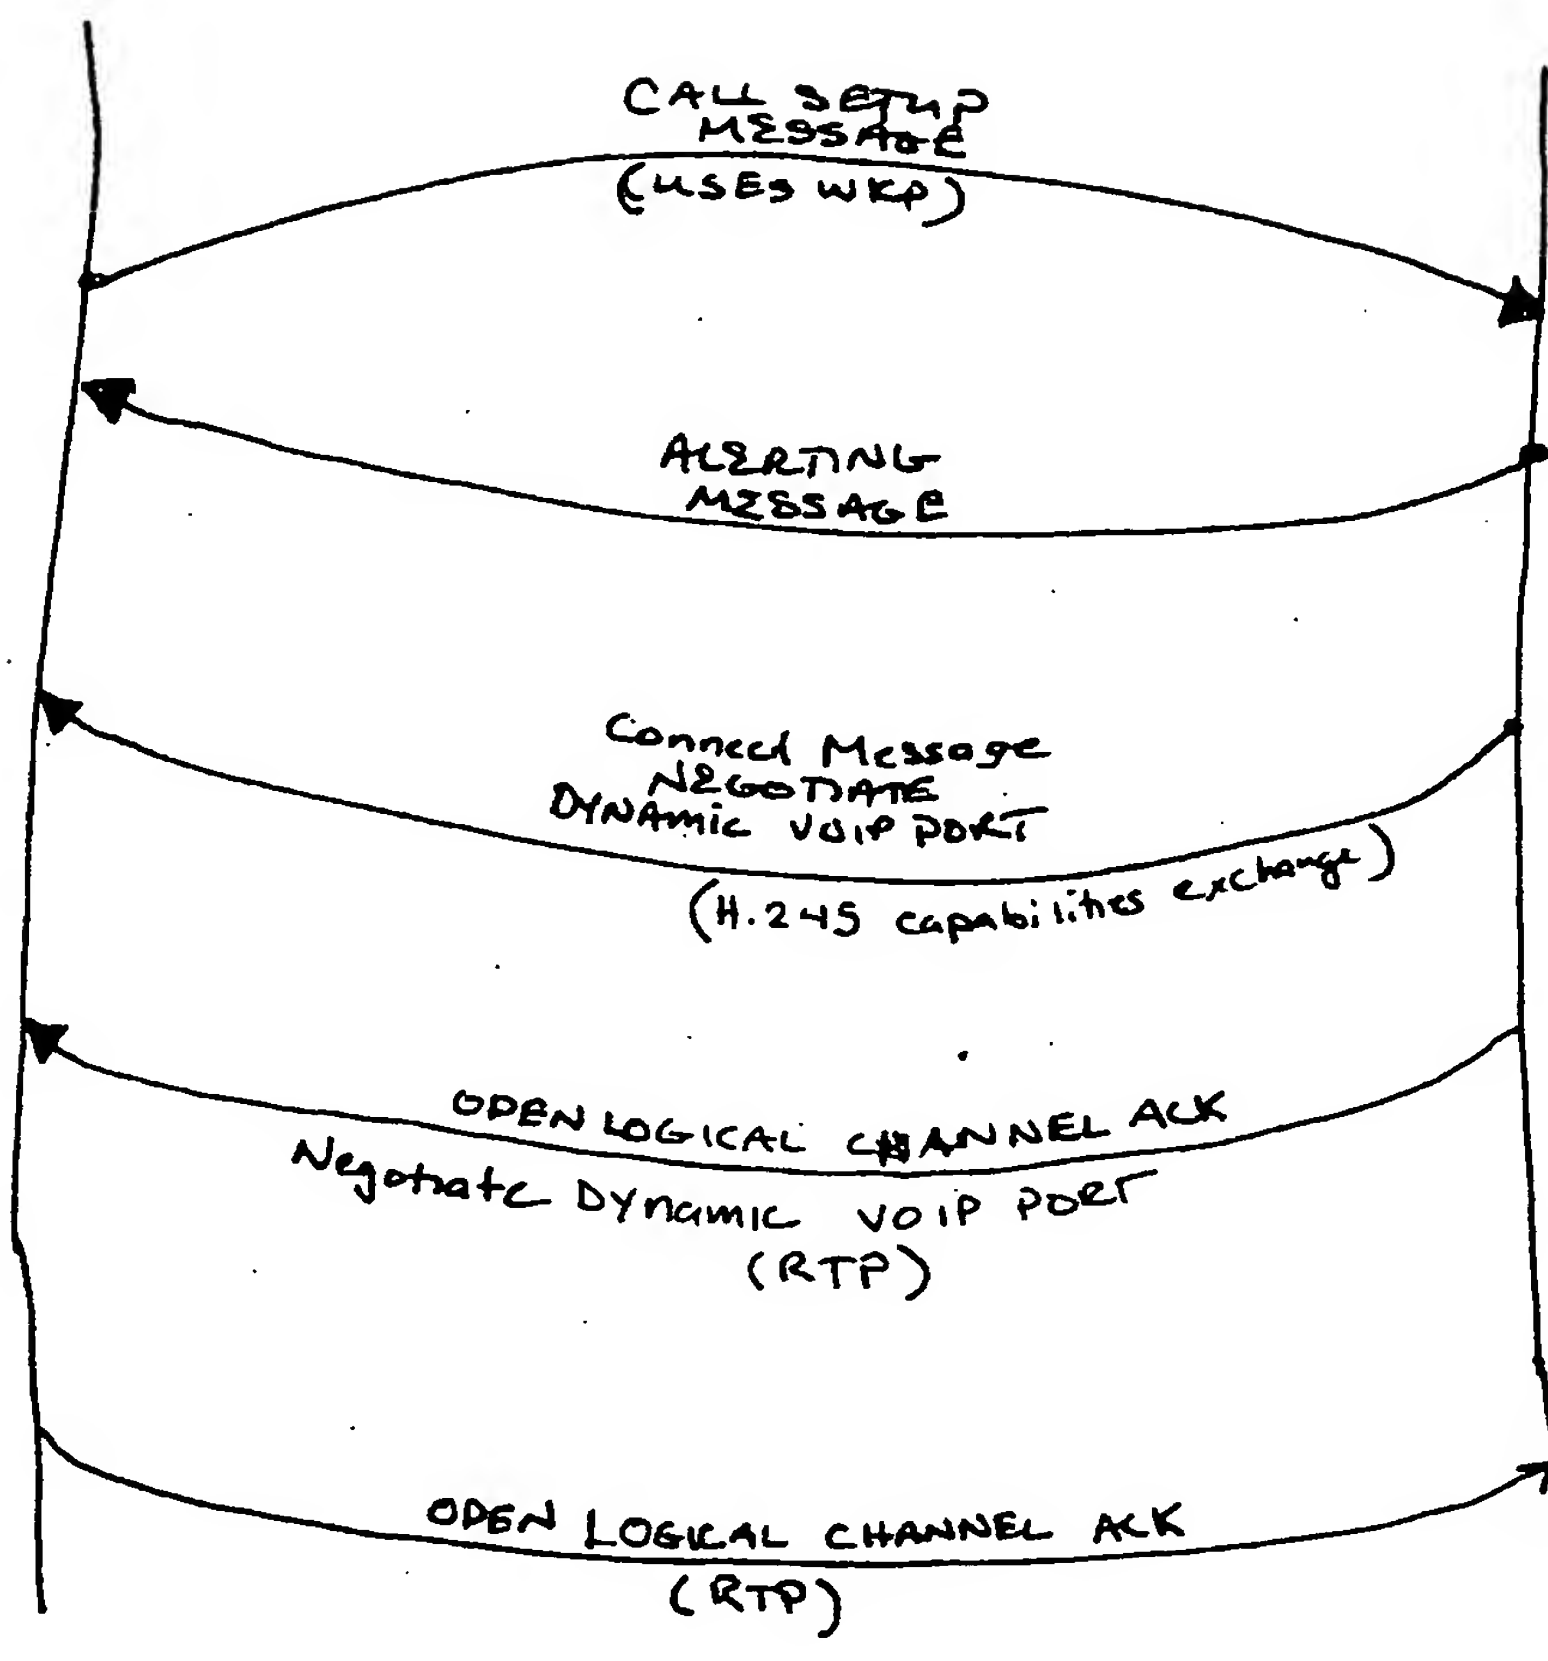 CALL SETUP
MESSAGE
(USES WKP)
ALERTING
MESSAGE
Connect Message
NEGOTIATE
DYNAMIC VOIP PORT
(H.245 capabilities exchange)
OPEN LOGICAL CHANNEL ACK
Negotiate DYnamic VOIP PORT
(RTP)
OPEN LOGICAL CHANNEL ACK
(RTP)